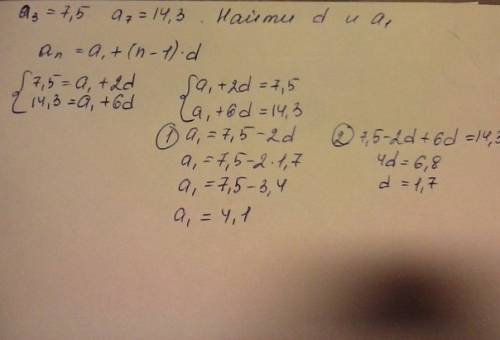 a₃ = 7,5   a₇ = 14,3 . Найти d и a₁
aₙ = a₁ + (n - 1) · d
{ 7,5 = a₁ + 2d   { a₁ + 2d = 7,5
{ 14,3 = a₁ + 6d   { a₁ + 6d = 14,3
① a₁ = 7,5 - 2d   ② 7,5 - 2d + 6d = 14,3
a₁ = 7,5 - 2 · 1,7   4d = 6,8
a₁ = 7,5 - 3,4   d = 1,7
a₁ = 4,1